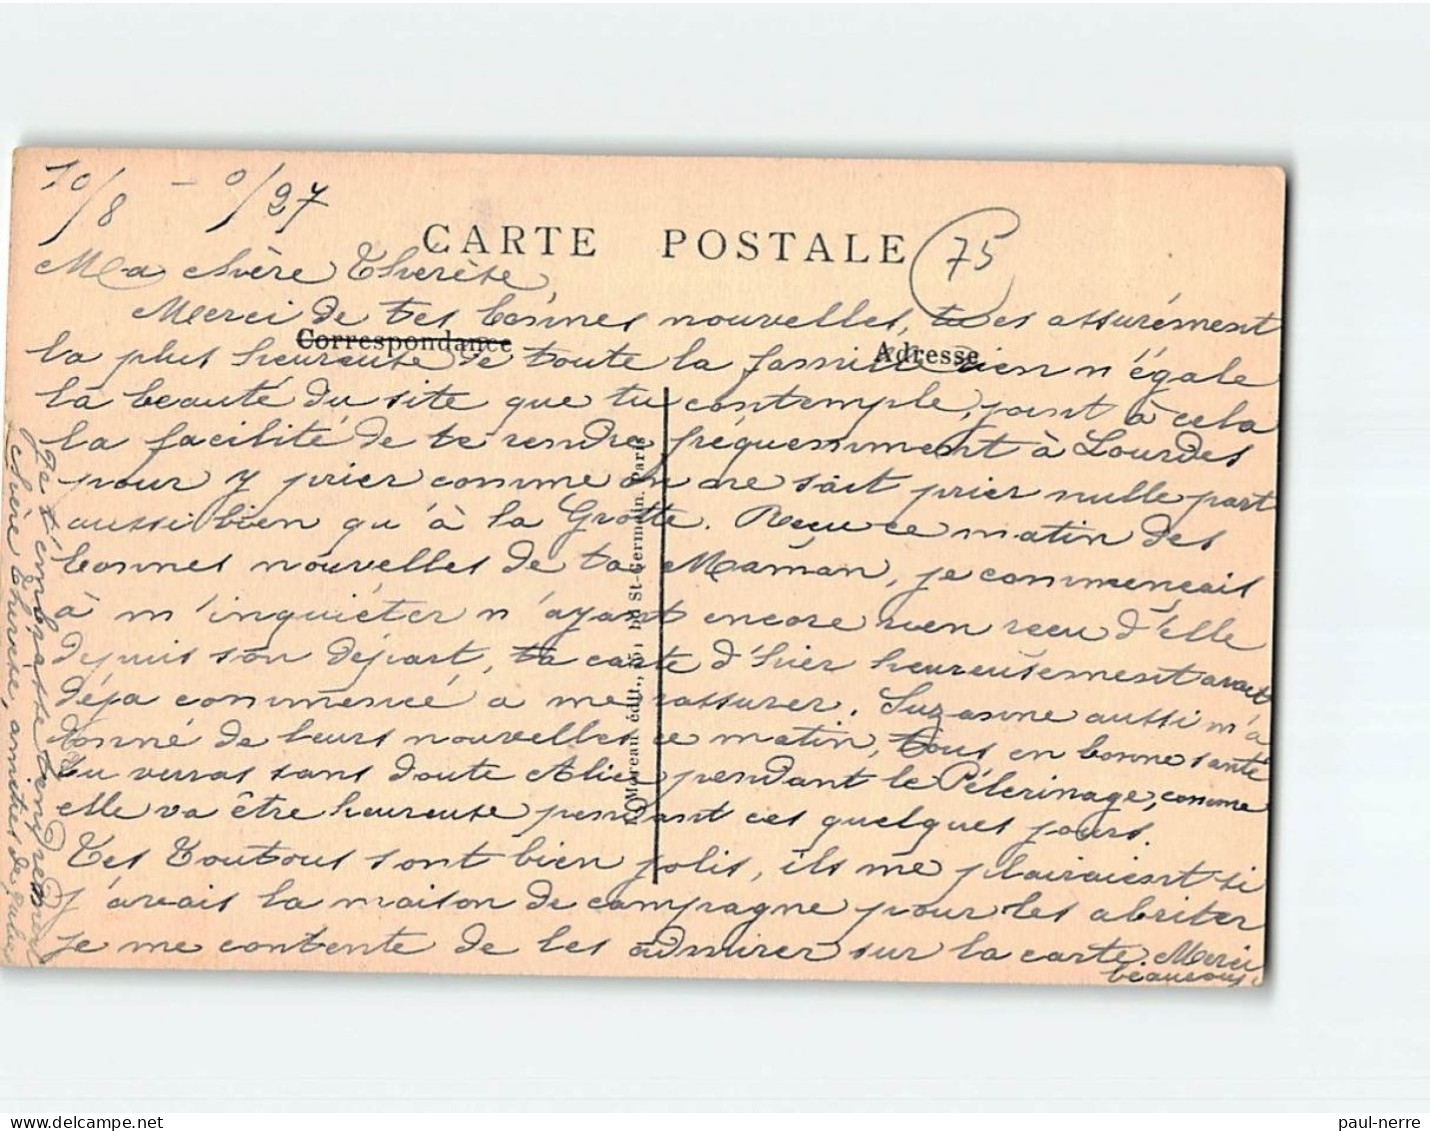 10/8 - 0/27
CARTE POSTALE
75
Ma chère Thérèse,
Merci de tes bonnes nouvelles, tu es assurément
Correspondance
Adresse
la plus heureuse de toute la famille rien n'égale
la beauté du site que tu contemple, joint à cela
la facilité de te rendre fréquemment à Lourdes
pour y prier comme on ne sait prier nulle part
aussi bien qu'à la Grotte. Reçu ce matin des
bonnes nouvelles de ta Maman, je commençais
à m'inquiéter n'ayant encore rien reçu d'elle
depuis son départ, ta carte d'hier heureusement avait
déja commencé a me rassurer. Suzanne aussi m'a
donné de leurs nouvelles ce matin, tous en bonne santé
tu verras sans doute Alice pendant le Pélerinage, comme
elle va être heureuse pendant ces quelques jours.
Tes Toutous sont bien jolis, ils me plairaient si
j'avais la maison de campagne pour les abriter
je me contente de les admirer sur la carte. Merci
beaucoup.
Je t'embrasse tendrement
chère Thérèse, amitiés de
Moreau édit., bd St-Germain. Paris
paul-nerre